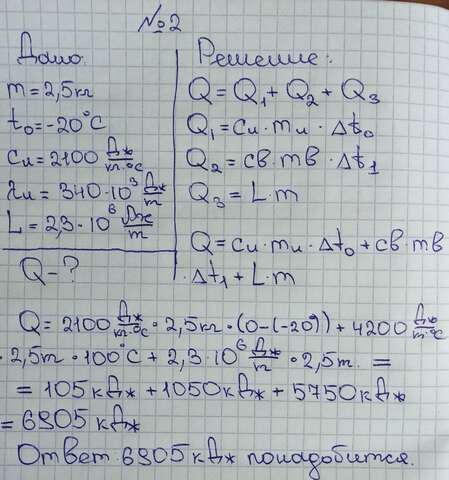 №2
Дано:
m=2,5кг
t₀=-20°C
Cл=2100 Дж/кг·°C
λл=340·10³ Дж/m
L=2,3·10⁶ Дж/m
Q-?
Решение:
Q=Q₁+Q₂+Q₃
Q₁=Cл·mл·Δt₀
Q₂=cв·mв·Δt₁
Q₃=L·m
Q=Cл·mл·Δt₀+cв·mв
·Δt₁+L·m
Q=2100 Дж/кг·°C·2,5кг·(0-(-20°))+4200 Дж/m·°C
·2,5m·100°C+2,3·10⁶ Дж/m·2,5m.=
=105кДж+1050кДж+5750кДж
=6905кДж
Ответ:6905кДж понадобится.